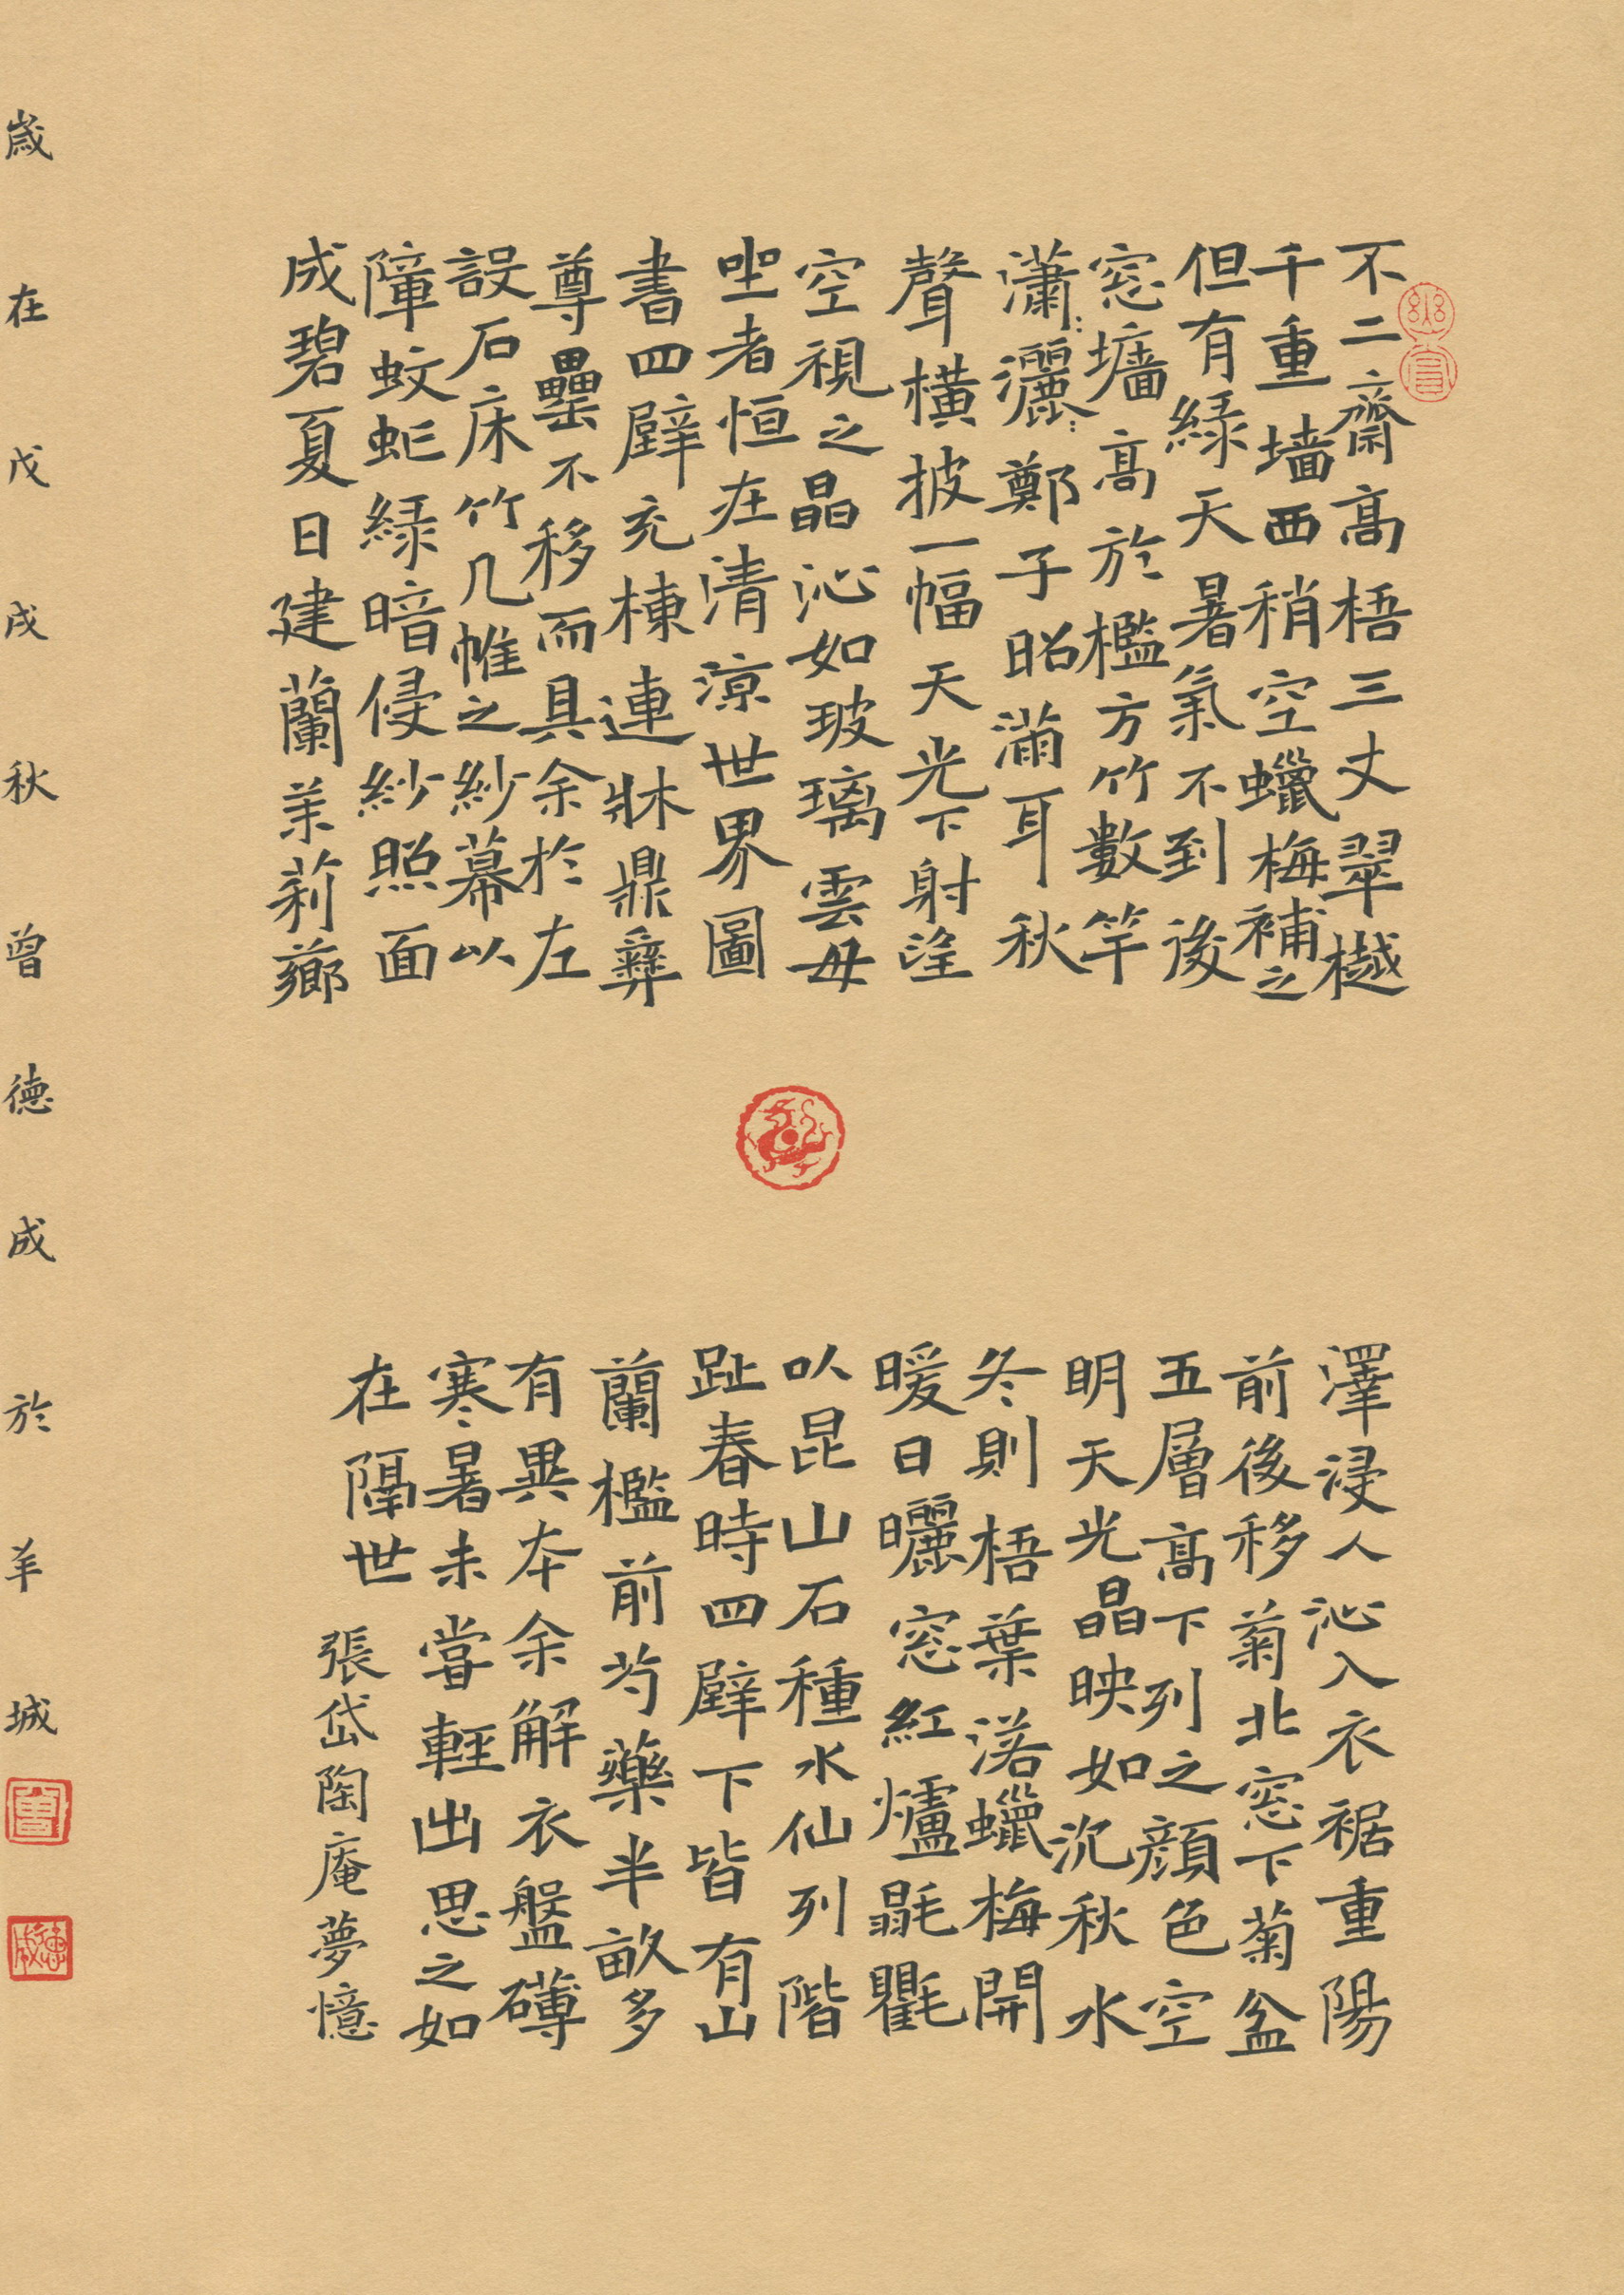 不二齋高梧三丈翠樾
千重墙西稍空蠟梅補之
但有緑天暑氣不到後
窓墻高於檻方竹數竿
瀟:灑:鄭子昭滿耳秋
聲橫披一幅天光下射望
空視之晶沁如玻璃雲母
坐者恒在清涼世界圖
書四壁充棟連牀鼎彝
尊罍不移而具余於左
設石床竹几帷之紗幕以
障蚊虻緑暗侵紗照面
成碧夏日建蘭茉莉薌
澤浸人沁入衣裾重陽
前後移菊北窓下菊盆
五層高下列之顏色空
明天光晶映如沉秋水
冬則梧葉落蠟梅開
暖日曬窓紅爐毾氍
以昆山石種水仙列階
趾春時四壁下皆有山
蘭檻前芍藥半畝多
有異本余解衣盤礴
寒暑未嘗輕出思之如
在隔世 張岱陶庵夢憶
歲在戊戌秋曾德成於羊城
曾
德成